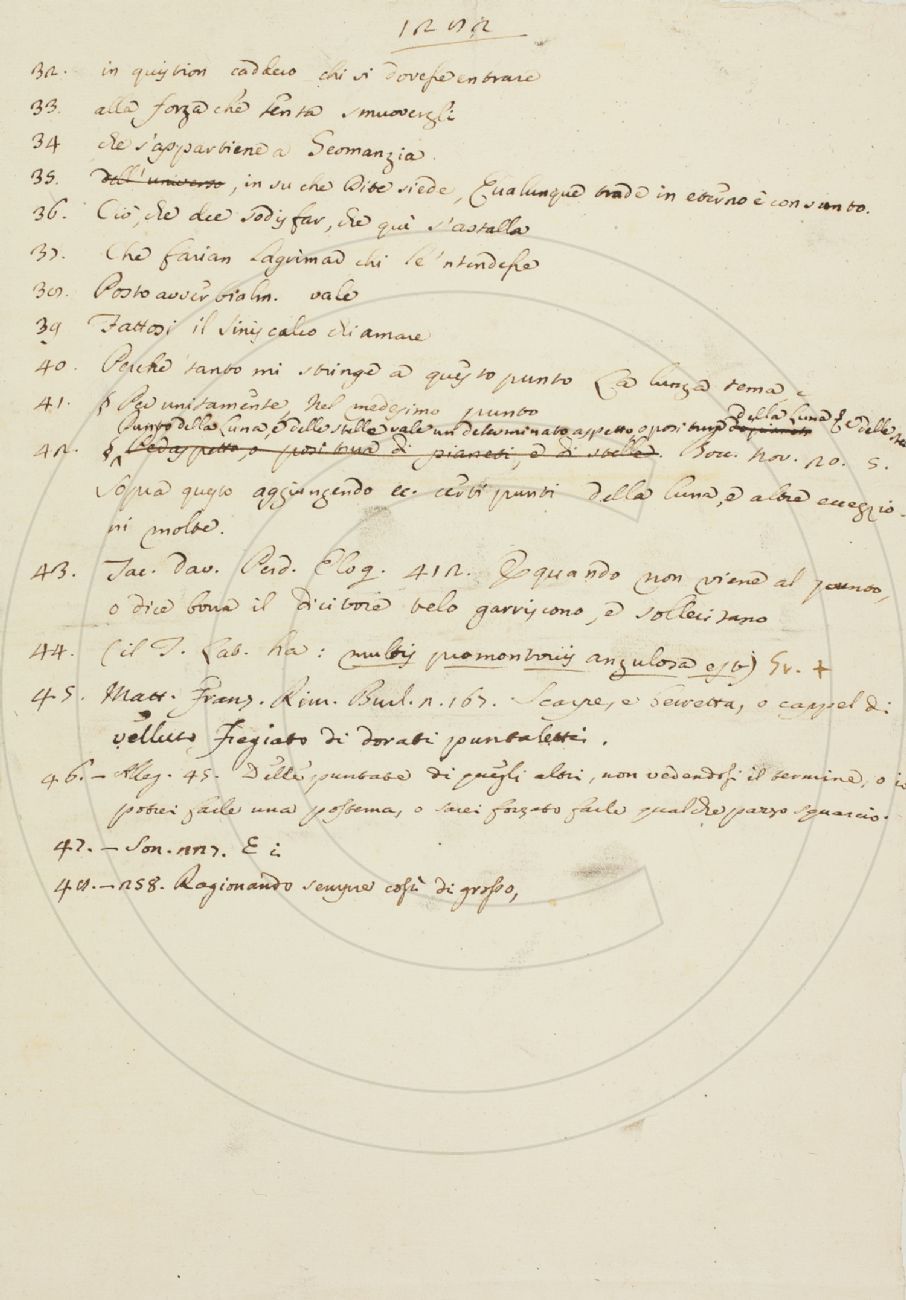 1282
32. in quistion caddero chi si dovesse entrare
33. alla forza che tenta smuovergli
34 che s'appartiene a Geomanzia.
35. dell'universo, in su che Dite siede, Qualunque trade in eterno è consunto.
36. Ciò, che dee sodisfar, che qui s'astalla
37. Che farian lagrimar chi le 'ntendesse
38. Posto avverbialm. vale
39 Fattosi il Siniscalco chiamare
40. Perchè tanto mi stringe a questo punto La lunga tema
41. § Per unitamente, Nel medesimo punto
Punto della Luna, e delle stelle vale un determinato aspetto o positura de pianeti della Luna e delle
42. § Per aspetto, o positura di pianeti, e di stelle. Bocc. nov. 20. 5.
Sopra questo aggiungendo ec. certi punti della luna, e altre eccezio-
ni molte.
43. Tac. Dav. Perd. Eloq. 412. E quando non viene al punto,
o dice bova il dicitore velo garriscono, e sollecitano
44. (il T. Lab. ha: multis promontoriis angulosa est) Gr. +
45. Matt. Franz. Rim. Burl. n. 167. Scarpe, e berretta, o cappel di
velluto Fregiato di dorati puntaletti.
46. – Alleg. 45. Delle puntate di quegli altri, non vedendosi il termine, o io
potrei farle una postema, o sarei forzato farle qualche pazzo squarcio.
47. – Son. 227. E i
48. – 258. Ragionando sempre così di grosso,